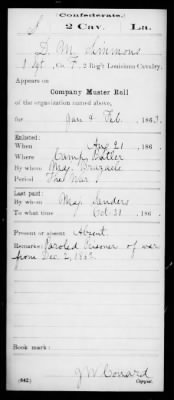 Confederate.
S 2 Cav. La.
D. M. Simmons
1 Sgt, Co. F, 2 Reg't Louisiana Cavalry.
Appears on
Company Muster Roll
of the organization named above,
for Jan & Feb, 1863.
Enlisted:
When Aug 21, 186
Where Camp Butler
By whom Maj.
Period The War
Last paid:
By whom Maj. Sanders
To what time Oct 31, 186
Present or absent Absent
Remarks: Paroled Prisoner of war
from Dec 2, 1862
Book mark:
J W Conard
(642) Copyist.